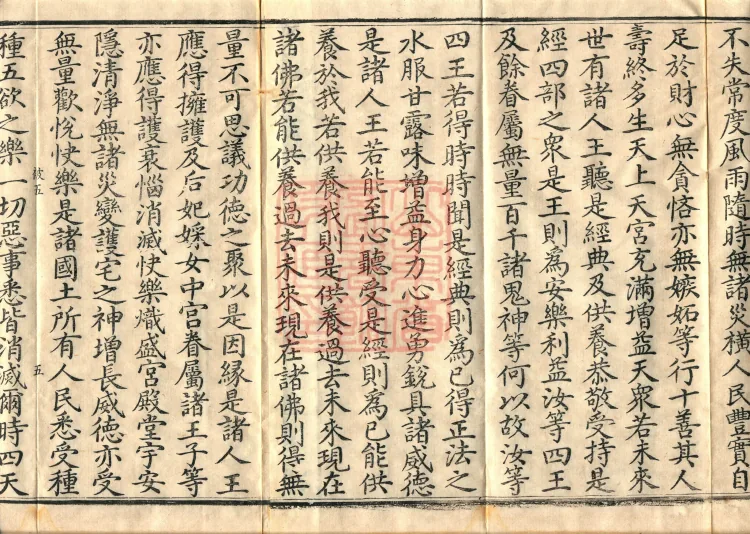 不失常度風雨隨時無諸災橫人民豐實自
足於財心無貪悋亦無嫉妬等行十善其人
壽終多生天上天宮充滿增益天衆若未來
世有諸人王聽是經典及供養恭敬受持是
經四部之衆是王則爲安樂利益汝等四王
及餘眷屬無量百千諸鬼神等何以故汝等
四王若得時時聞是經典則爲已得正法之
水服甘露味增益身力心進勇銳具諸威德
是諸人王若能至心聽受是經則爲已能供
養於我若供養我則是供養過去未來現在
諸佛若能供養過去未來現在諸佛則得無
量不可思議功德之聚以是因緣是諸人王
應得擁護及后妃婇女中宮眷屬諸王子等
亦應得護衰惱消滅快樂熾盛宮殿堂宇安
隱清淨無諸災變護宅之神增長威德亦受
無量歡悅快樂是諸國土所有人民悉受種
五
種五欲之樂一切惡事悉皆消滅爾時四天